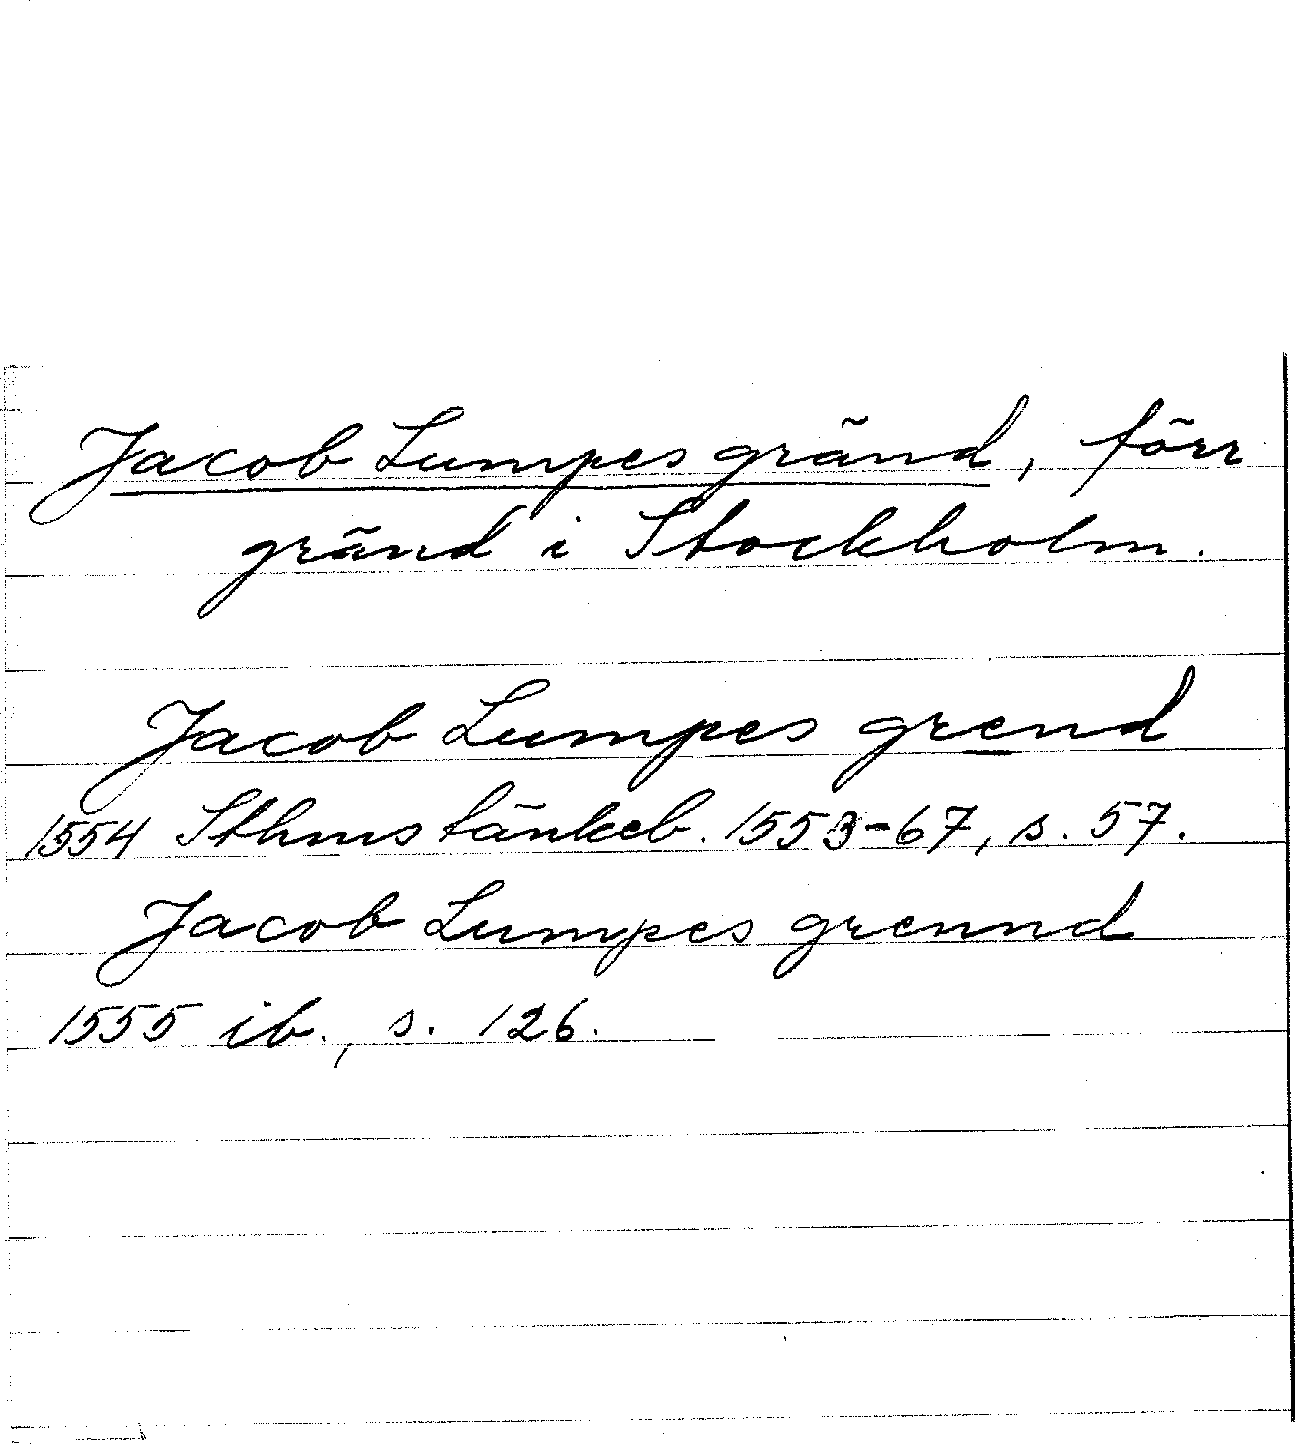 Jacob Lumpes gränd, förr
gränd i Stockholm.
Jacob Lumpes grend
1554 Sthms tänkeb. 1553-67, s. 57.
Jacob Lumpes grennd
1555 ib., s. 126.